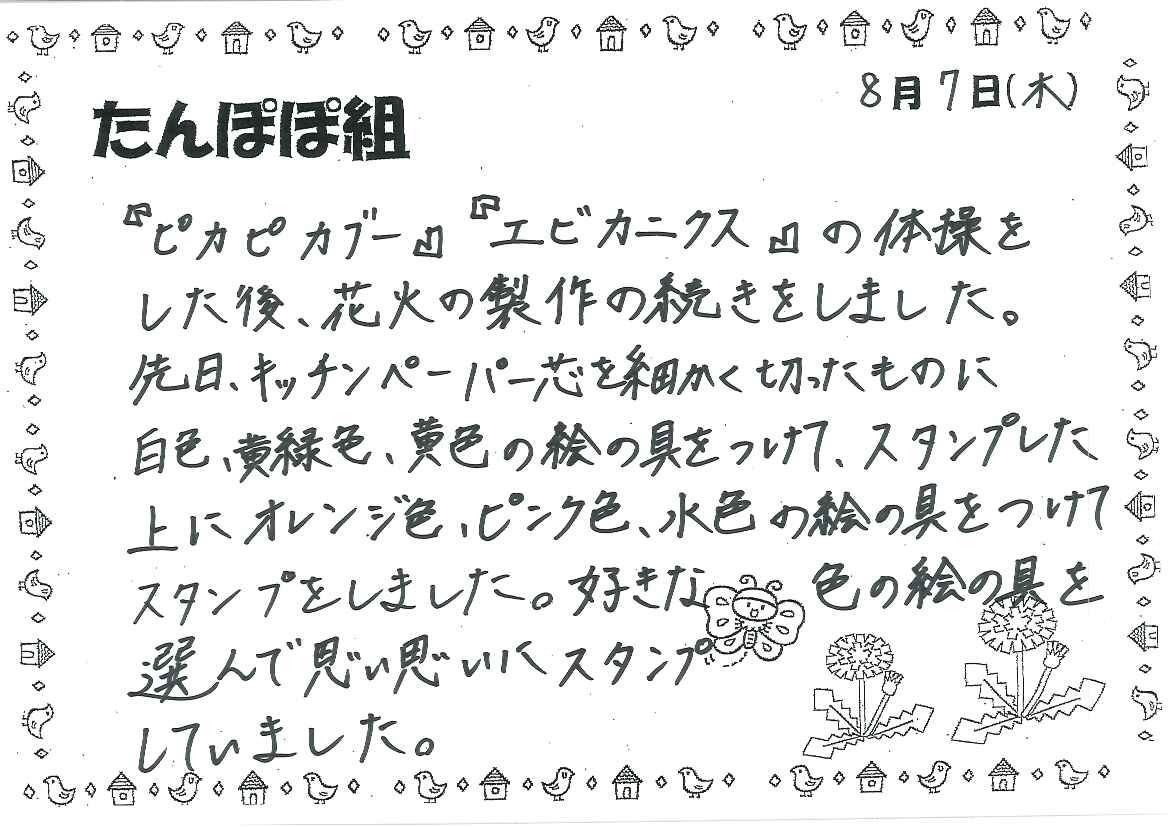 8月7日(木)
たんぽぽ組
『ピカピカブー』『エビカニクス』の体操を
した後、花火の製作の続きをしました。
先日、キッチンペーパー芯を細かく切ったものに
白色、黄緑色、黄色の絵の具をつけて、スタンプした
上にオレンジ色、ピンク色、水色の絵の具をつけて
スタンプをしました。好きな色の絵の具を
選んで思い思いにスタンプ
していました。